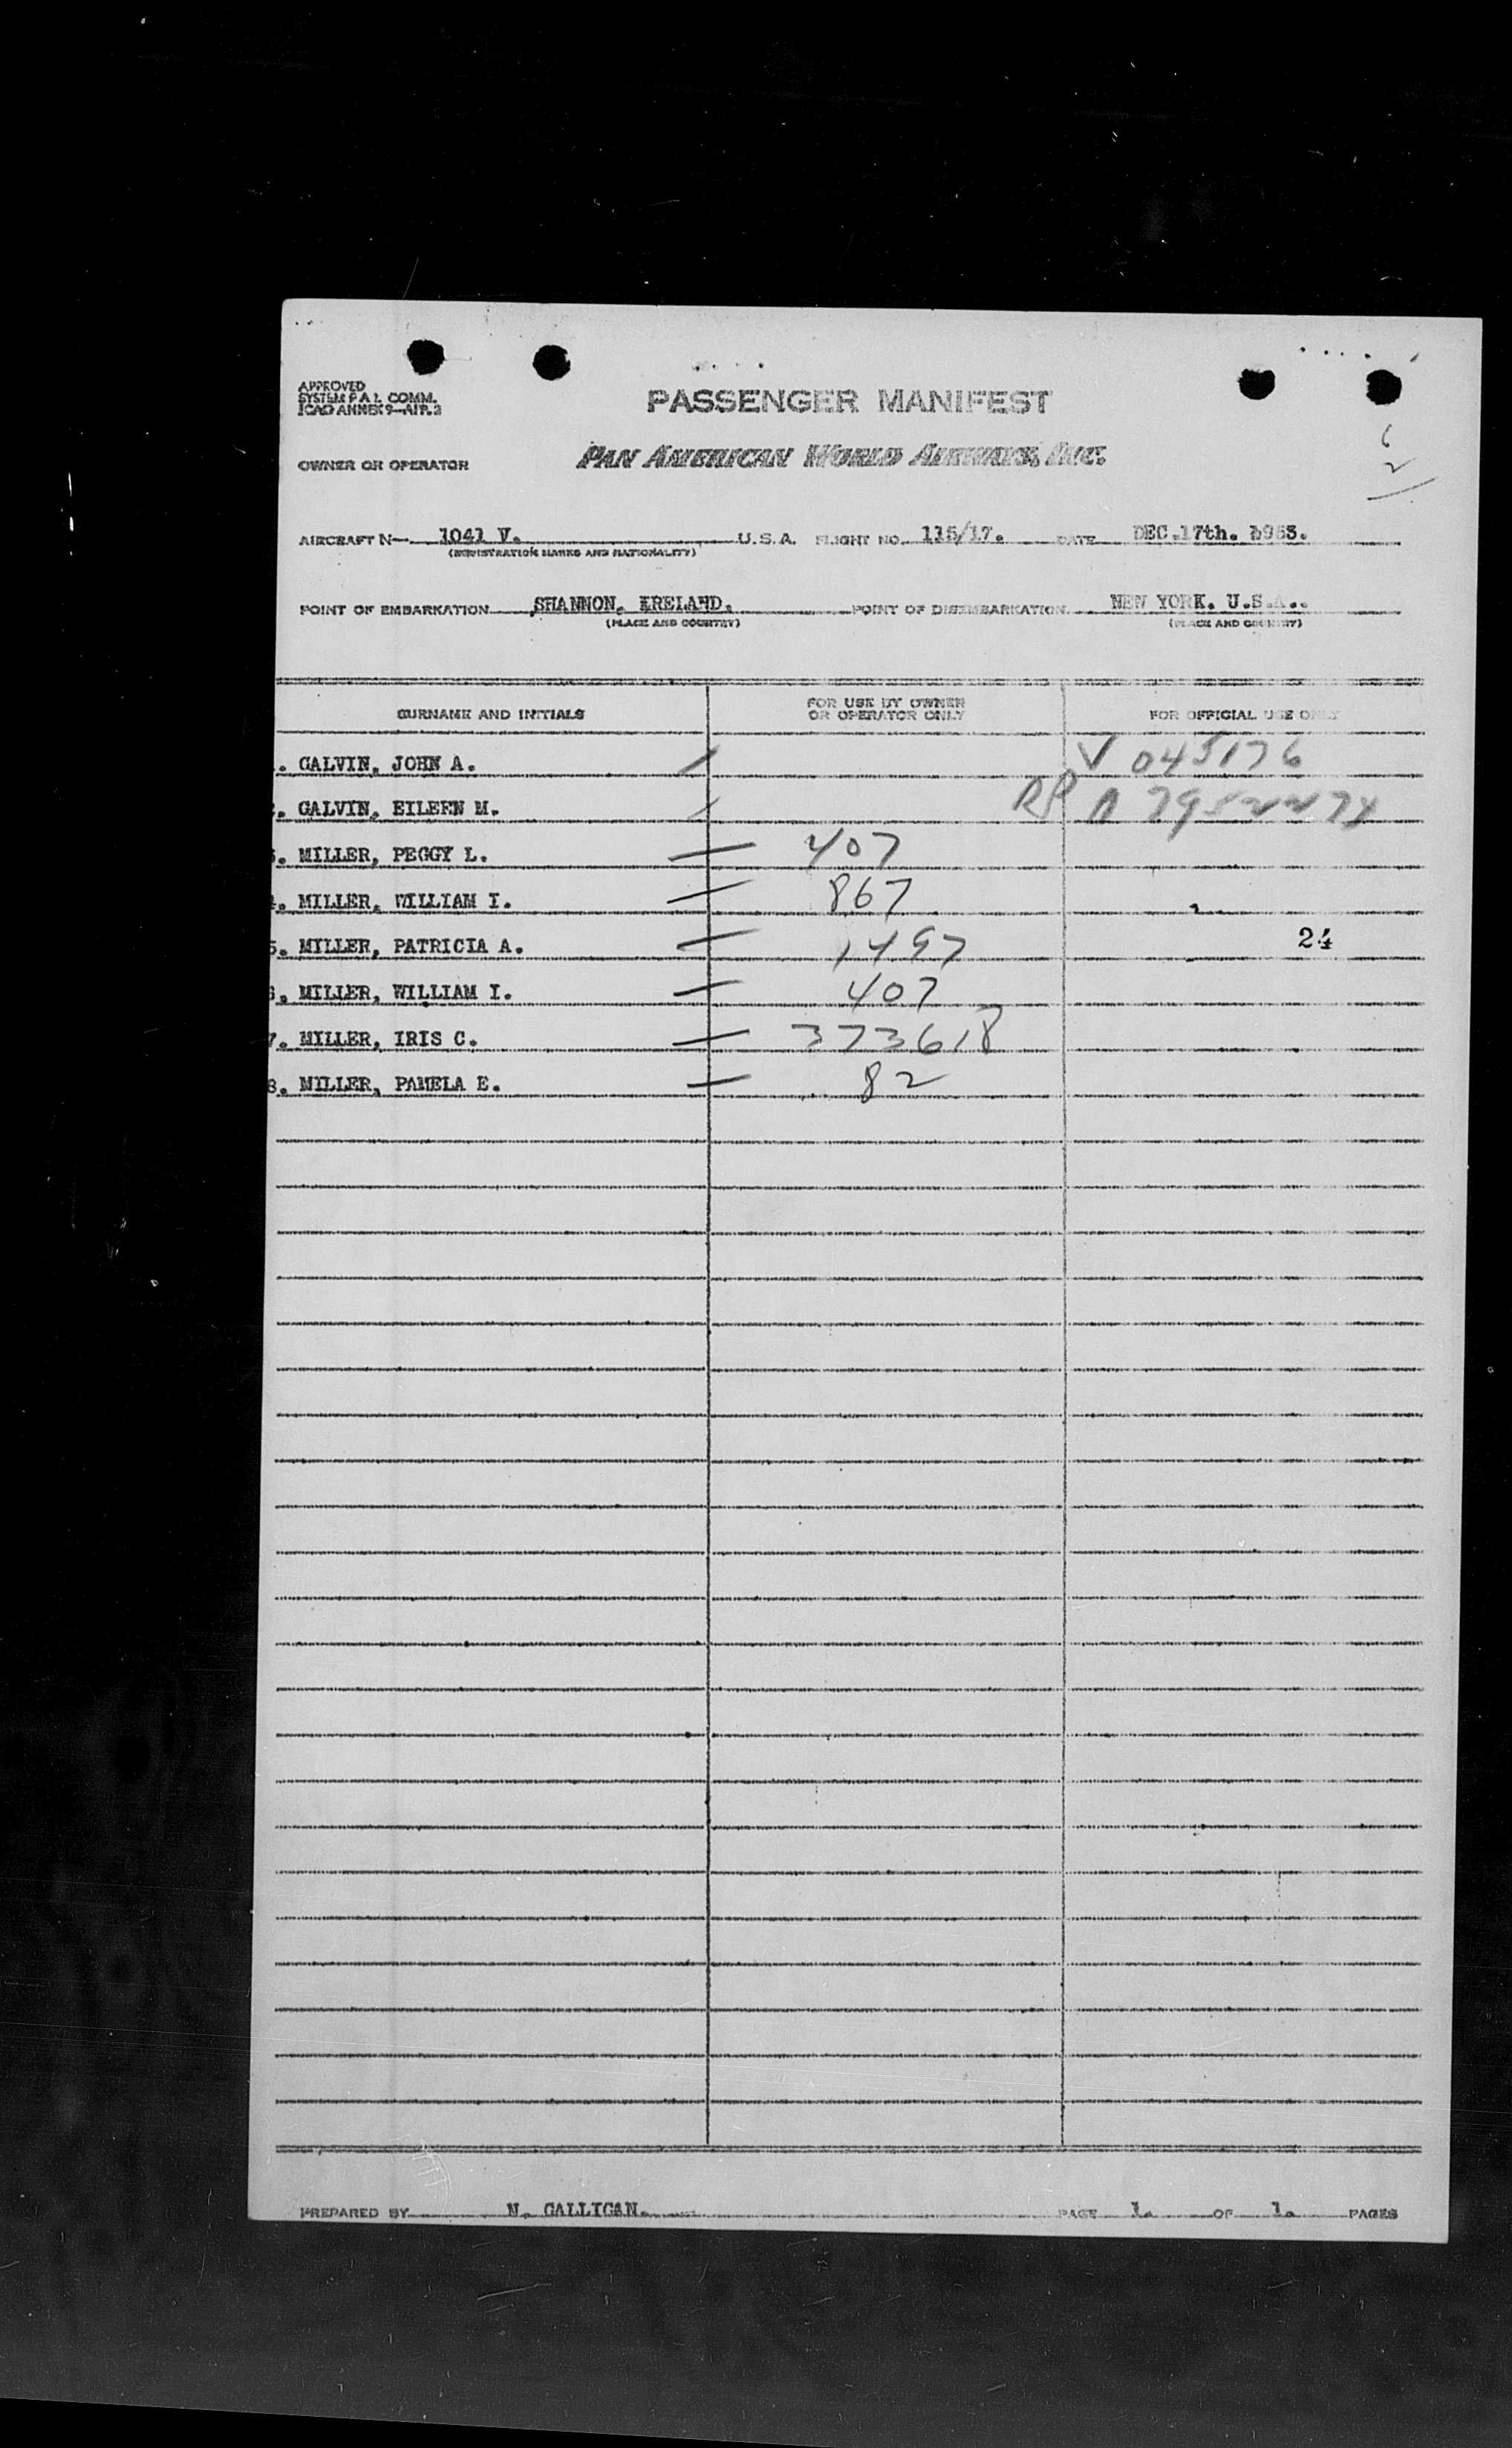 APPROVED
SYSTEM F A L COMM.
ICAO ANNEX 9—AIR. 2
PASSENGER MANIFEST
6
2
OWNER OR OPERATOR PAN AMERICAN WORLD AIRWAYS, INC.
AIRCRAFT N— 1041 V. U.S.A. FLIGHT NO. 115/17. DATE DEC.17th.
(REGISTRATION MARKS AND NATIONALITY)
POINT OF EMBARKATION SHANNON, IRELAND. POINT OF DISEMBARKATION NEW YORK. U.S.A..
(PLACE AND COUNTRY) (PLACE AND COUNTRY)
SURNAME AND INITIALS FOR USE BY OWNER OR OPERATOR ONLY FOR OFFICIAL USE ONLY
. GALVIN, JOHN A. V 045176
. GALVIN, EILEEN M.
. MILLER, PEGGY L. — 407
. MILLER, WILLIAM I. — 867
5. MILLER, PATRICIA A. — 1497 24
. MILLER, WILLIAM I. — 407
7. MILLER, IRIS C. — 373618
8. MILLER, PAMELA E. — 82
PREPARED BY N. GALLIGAN. PAGE 1. OF 1. PAGES